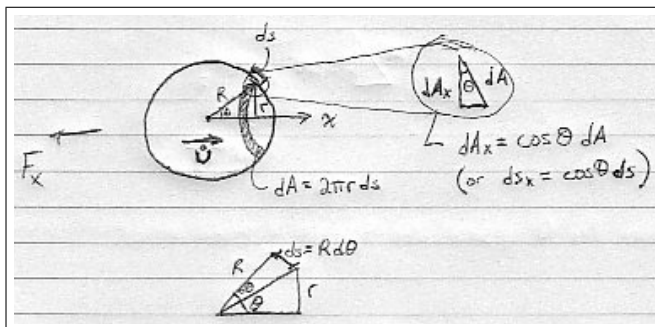 ds
R
θ
r
x
U̇
F_x
dA = 2πr ds
dA_x
θ
dA
dA_x = cos θ dA
(or ds_x = cos θ ds)
ds = R dθ
R
dθ
θ
r